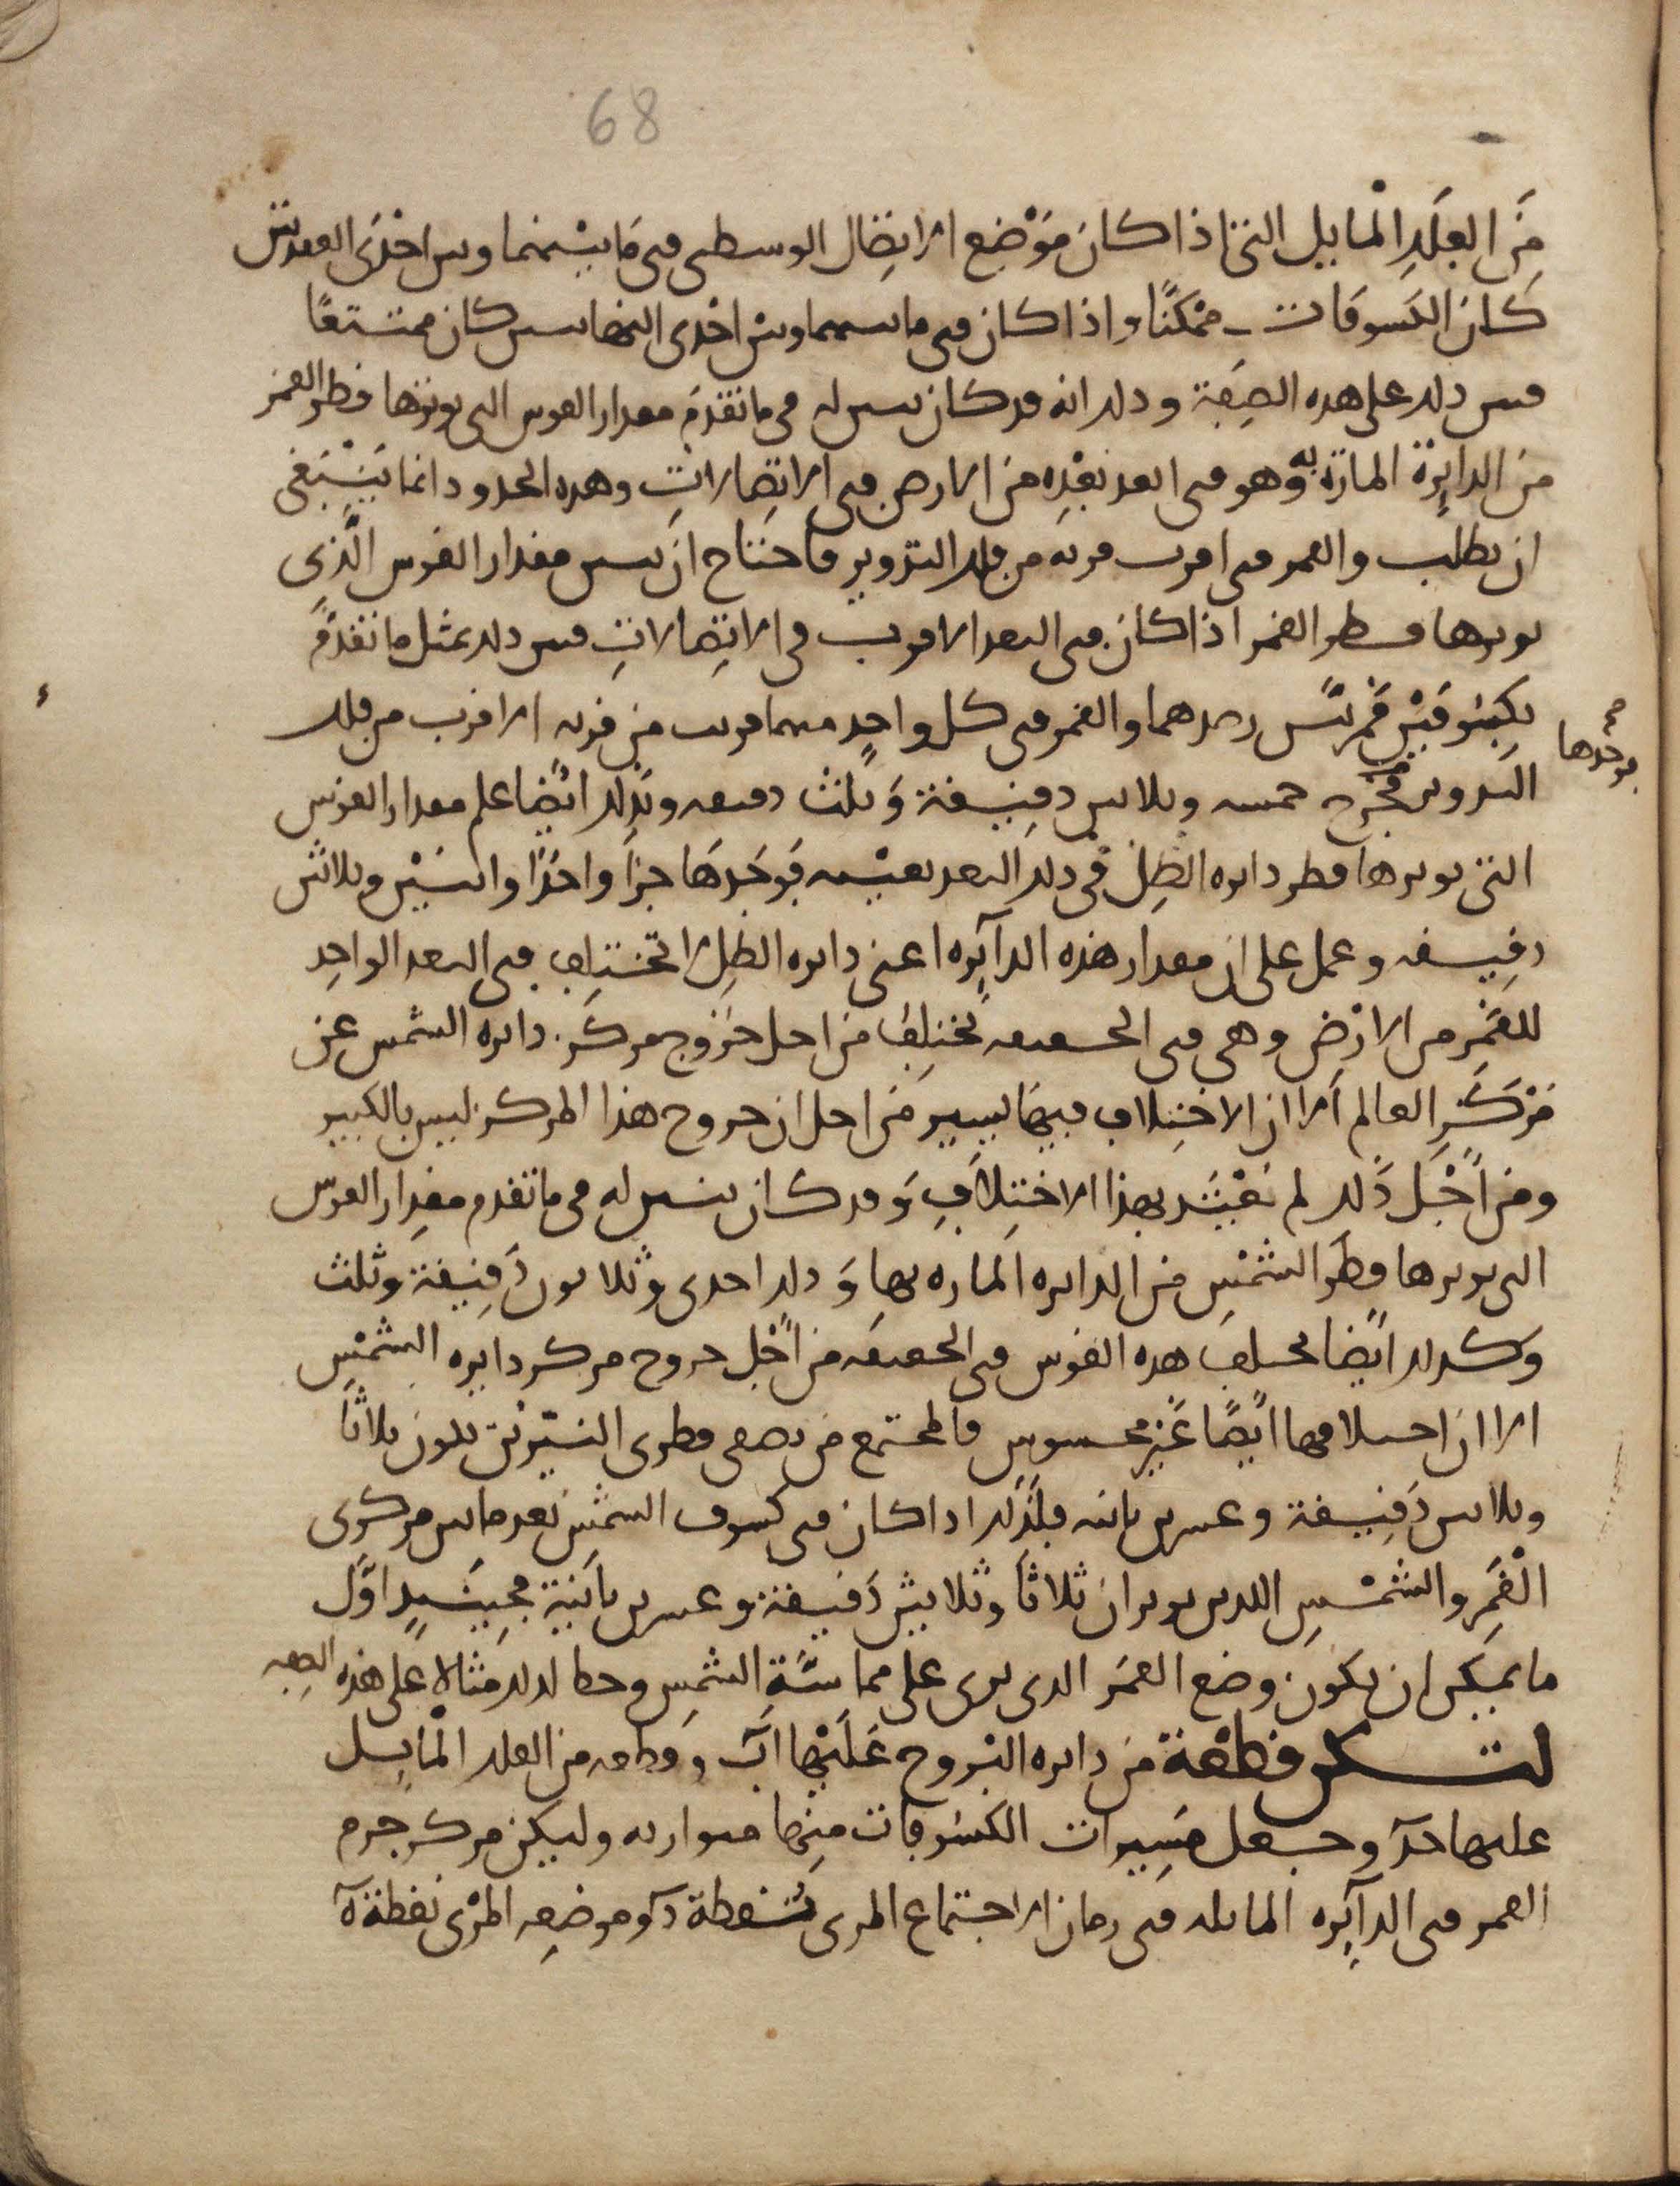 68
من الفلك المايل التى اذا كان موضع الاتصال الوسطى فى ما بينهما وبين احدى العقدتين
كان الكسوفات ممكنًا واذا كان فى ما بينهما وبين احدى النهايتين كان ممتنعًا
فبين ذلك على هذه الصفة وذلك انه قد كان تبين له فى ما تقدم مقدار القوس التى يوترها قطر القمر
من الدايرة المارة به وهو فى ابعد بعده من الارض فى الاتصالات وهذه الحدود انما ينبغى
ان يطلب والقمر فى اقرب قربه من فلك التدوير فاحتاج ان يبين مقدار القوس الذى
يوترها قطر القمر اذا كان فى البعد الاقرب فى الاتصالات فبين ذلك بمثل ما تقدم
بكسوفين قمريين رصدهما والقمر فى كل واحد منهما قريب من قربه الاقرب من فلك
التدوير خمسه وثلاثين دقيقة وثلث دقيقه وبذلك ايضًا علم مقدار القوس
فوجدها صح
التى يوترها قطر دايره الظل فى ذلك البعد بعينه فوجدها جزا واحدًا واثنين وثلاثين
دقيقه وعمل على ان مقدار هذه الدآيره اعنى دايره الظل لا تختلف فى البعد الواحد
للقمر من الارض وهى فى الحقيقه تختلف من اجل خروج مركز دايره الشمس عن
مركز العالم الا ان الاختلاف فيها يسير من اجل ان خروج هذا المركز ليس بالكبير
ومن اجل ذلك لم يعتد بهذا الاختلاف وقد كان تبين له فى ما تقدم مقدار القوس
التى يوترها قطر الشمس من الدايره الماره بها وذلك احدى وثلاثون دقيقة وثلث
وكذلك ايضًا تختلف هذه القوس فى الحقيقه من اجل خروج مركز دايره الشمس
الا ان اختلافها ايضًا غير محسوس فالمجتمع من نصفى قطرى النيرين يكون ثلاثا
وثلاثين دقيقة وعشرين ثانيه فلذلك اذا كان فى كسوف الشمس بعد ما بين مركزى
القمر والشمس اللذين يريان ثلاثا وثلاثين دقيقة وعشرين ثانية فحينيذ اول
ما يمكن ان يكون وضع القمر الذى يرى على مماسة الشمس وخط لذلك مثالا على هذه الصفه
لتكن قطعة من دايره البروج عليها اب وقطعه من الفلك المايل
عليها حد وجعل مسيرات الكسوفات منها متوازيه وليكن مركز جرم
القمر فى الدآيره المايله فى زمان الاجتماع المرى نقطة د وموضعه المرى نقطة ه